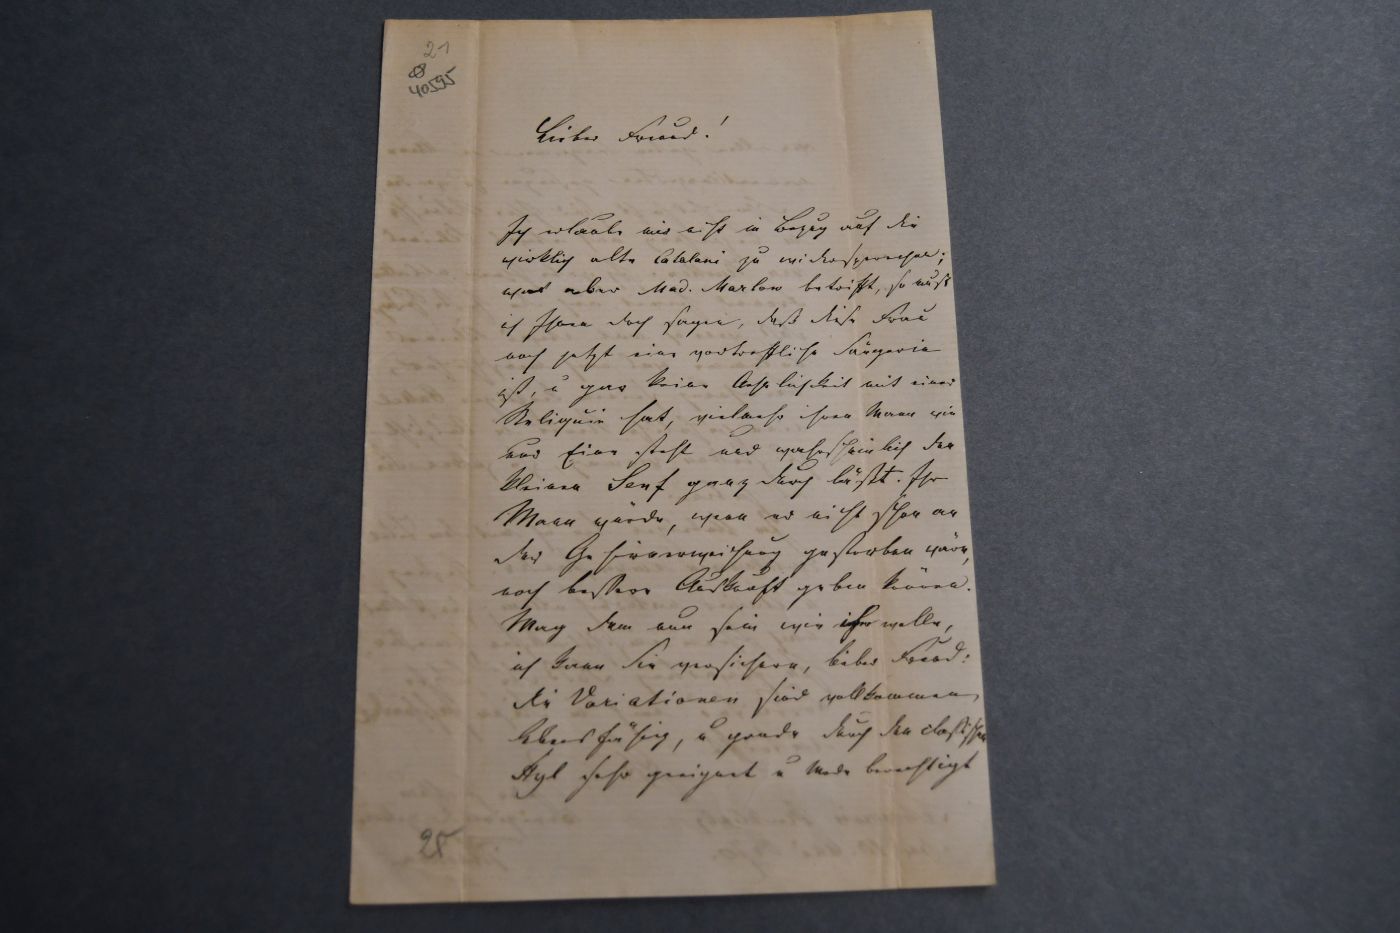 21
40595
Lieber Freund!
Ich erlaube mir nicht in Bezug auf die
wirklich alte Catalani zu widersprechen;
was aber Mad. Marlow betrifft, so muß
ich Ihnen doch sagen, daß diese Frau
noch jetzt eine vortreffliche Sängerin
ist, u gar keine Aehnlichkeit mit einer
Reliquie hat, vielmehr ihren Mann wie
nur Einer steht und wahrscheinlich den
kleinen Senf ganz durch läßt. Ihr
Mann würde, wenn er nicht schon an
der Gehirnerweichung gestorben wäre,
noch bessere Auskunft geben können.
Mag dem nun sein wie ihr wolle,
ich kann Sie versichern, lieber Freund:
die Variationen sind vollkommen
lebensfähig, u grade durch den classischen
Styl sehr geeignet u Mode berechtigt
25